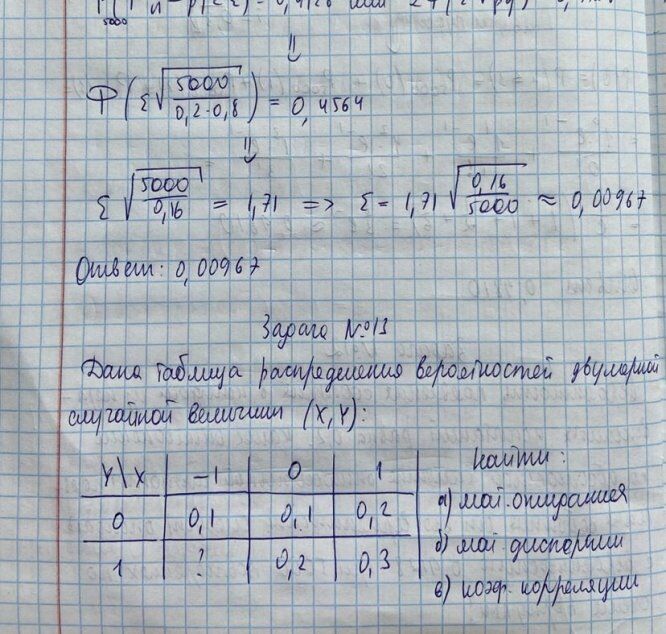 Φ(ε√(5000/(0,2·0,8))) = 0,4564
ε√(5000/0,16) = 1,71 => ε = 1,71 √(0,16/5000) ≈ 0,00967
Ответ: 0,00967
Задача №13
Дана таблица распределения вероятностей двумерной
случайной величины (X, Y):
Найти:
Y\X -1 0 1
0 0,1 0,1 0,2
1 ? 0,2 0,3
а) мат. ожидания
б) мат дисперсии
в) коэф. корреляции